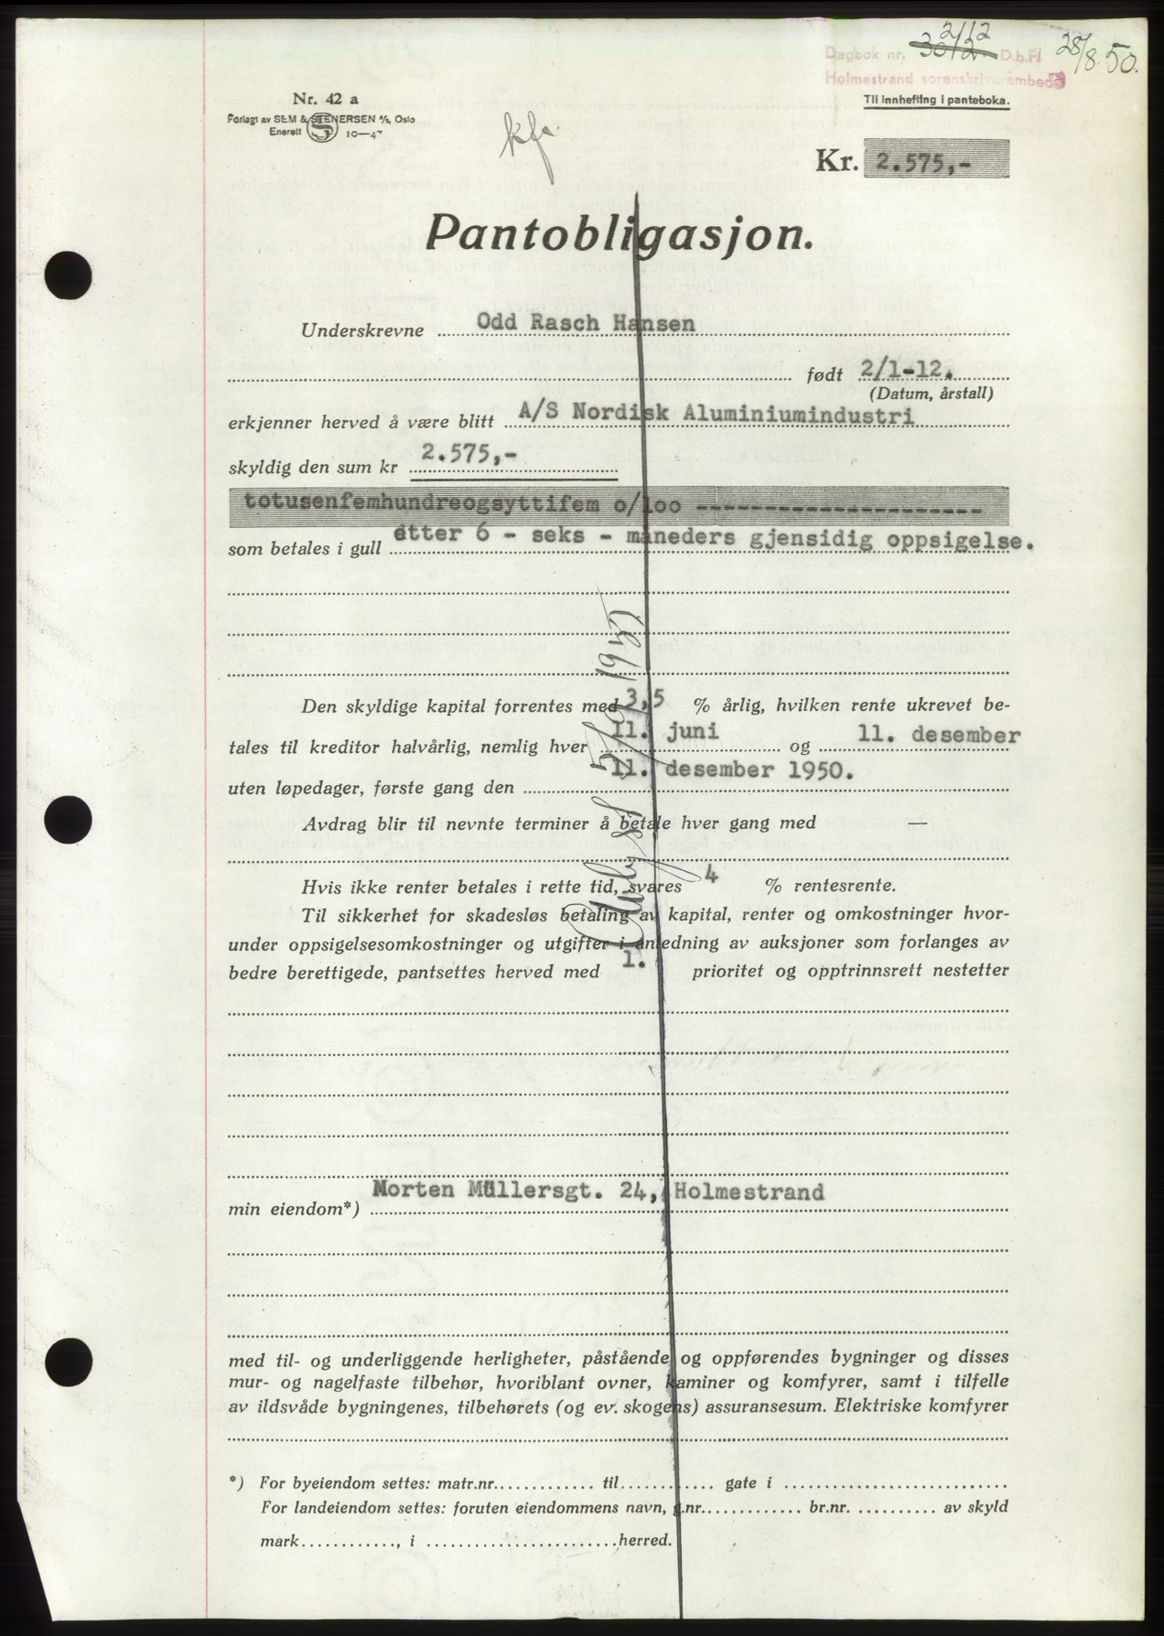 Dagbok nr. 2212 D.b.F.
28/8.50.
Holmestrand sorenskriverembede
Til innhefting i panteboka.
Nr. 42 a
Forlagt av SEM & STENERSEN A/S, Oslo
Enerett S 10—47
Kr. 2.575,-
Pantobligasjon.
Underskrevne Odd Rasch Hansen
født 2/1-12.
(Datum, årstall)
erkjenner herved å være blitt A/S Nordisk Aluminiumindustri
skyldig den sum kr 2.575,-
totusenfemhundreogsyttifem o/loo ----------------------
som betales i gull etter 6 - seks - måneders gjensidig oppsigelse.
Den skyldige kapital forrentes med 3,5 % årlig, hvilken rente ukrevet be-
tales til kreditor halvårlig, nemlig hver 11. juni og 11. desember
uten løpedager, første gang den 11. desember 1950.
Avdrag blir til nevnte terminer å betale hver gang med —
Hvis ikke renter betales i rette tid, svares 4 % rentesrente.
Til sikkerhet for skadesløs betaling av kapital, renter og omkostninger hvor-
under oppsigelsesomkostninger og utgifter i anledning av auksjoner som forlanges av
bedre berettigede, pantsettes herved med 1. prioritet og opptrinnsrett nestetter
min eiendom*) Morten Müllersgt. 24, Holmestrand
med til- og underliggende herligheter, påstående og oppførendes bygninger og disses
mur- og nagelfaste tilbehør, hvoriblant ovner, kaminer og komfyrer, samt i tilfelle
av ildsvåde bygningenes, tilbehørets (og ev. skogens) assuransesum. Elektriske komfyrer
*) For byeiendom settes: matr.nr............. til............. gate i ............................
For landeiendom settes: foruten eiendommens navn, g.nr............. br.nr. .......... av skyld
mark............, i ........................herred.
Avlyst 5/9 1957